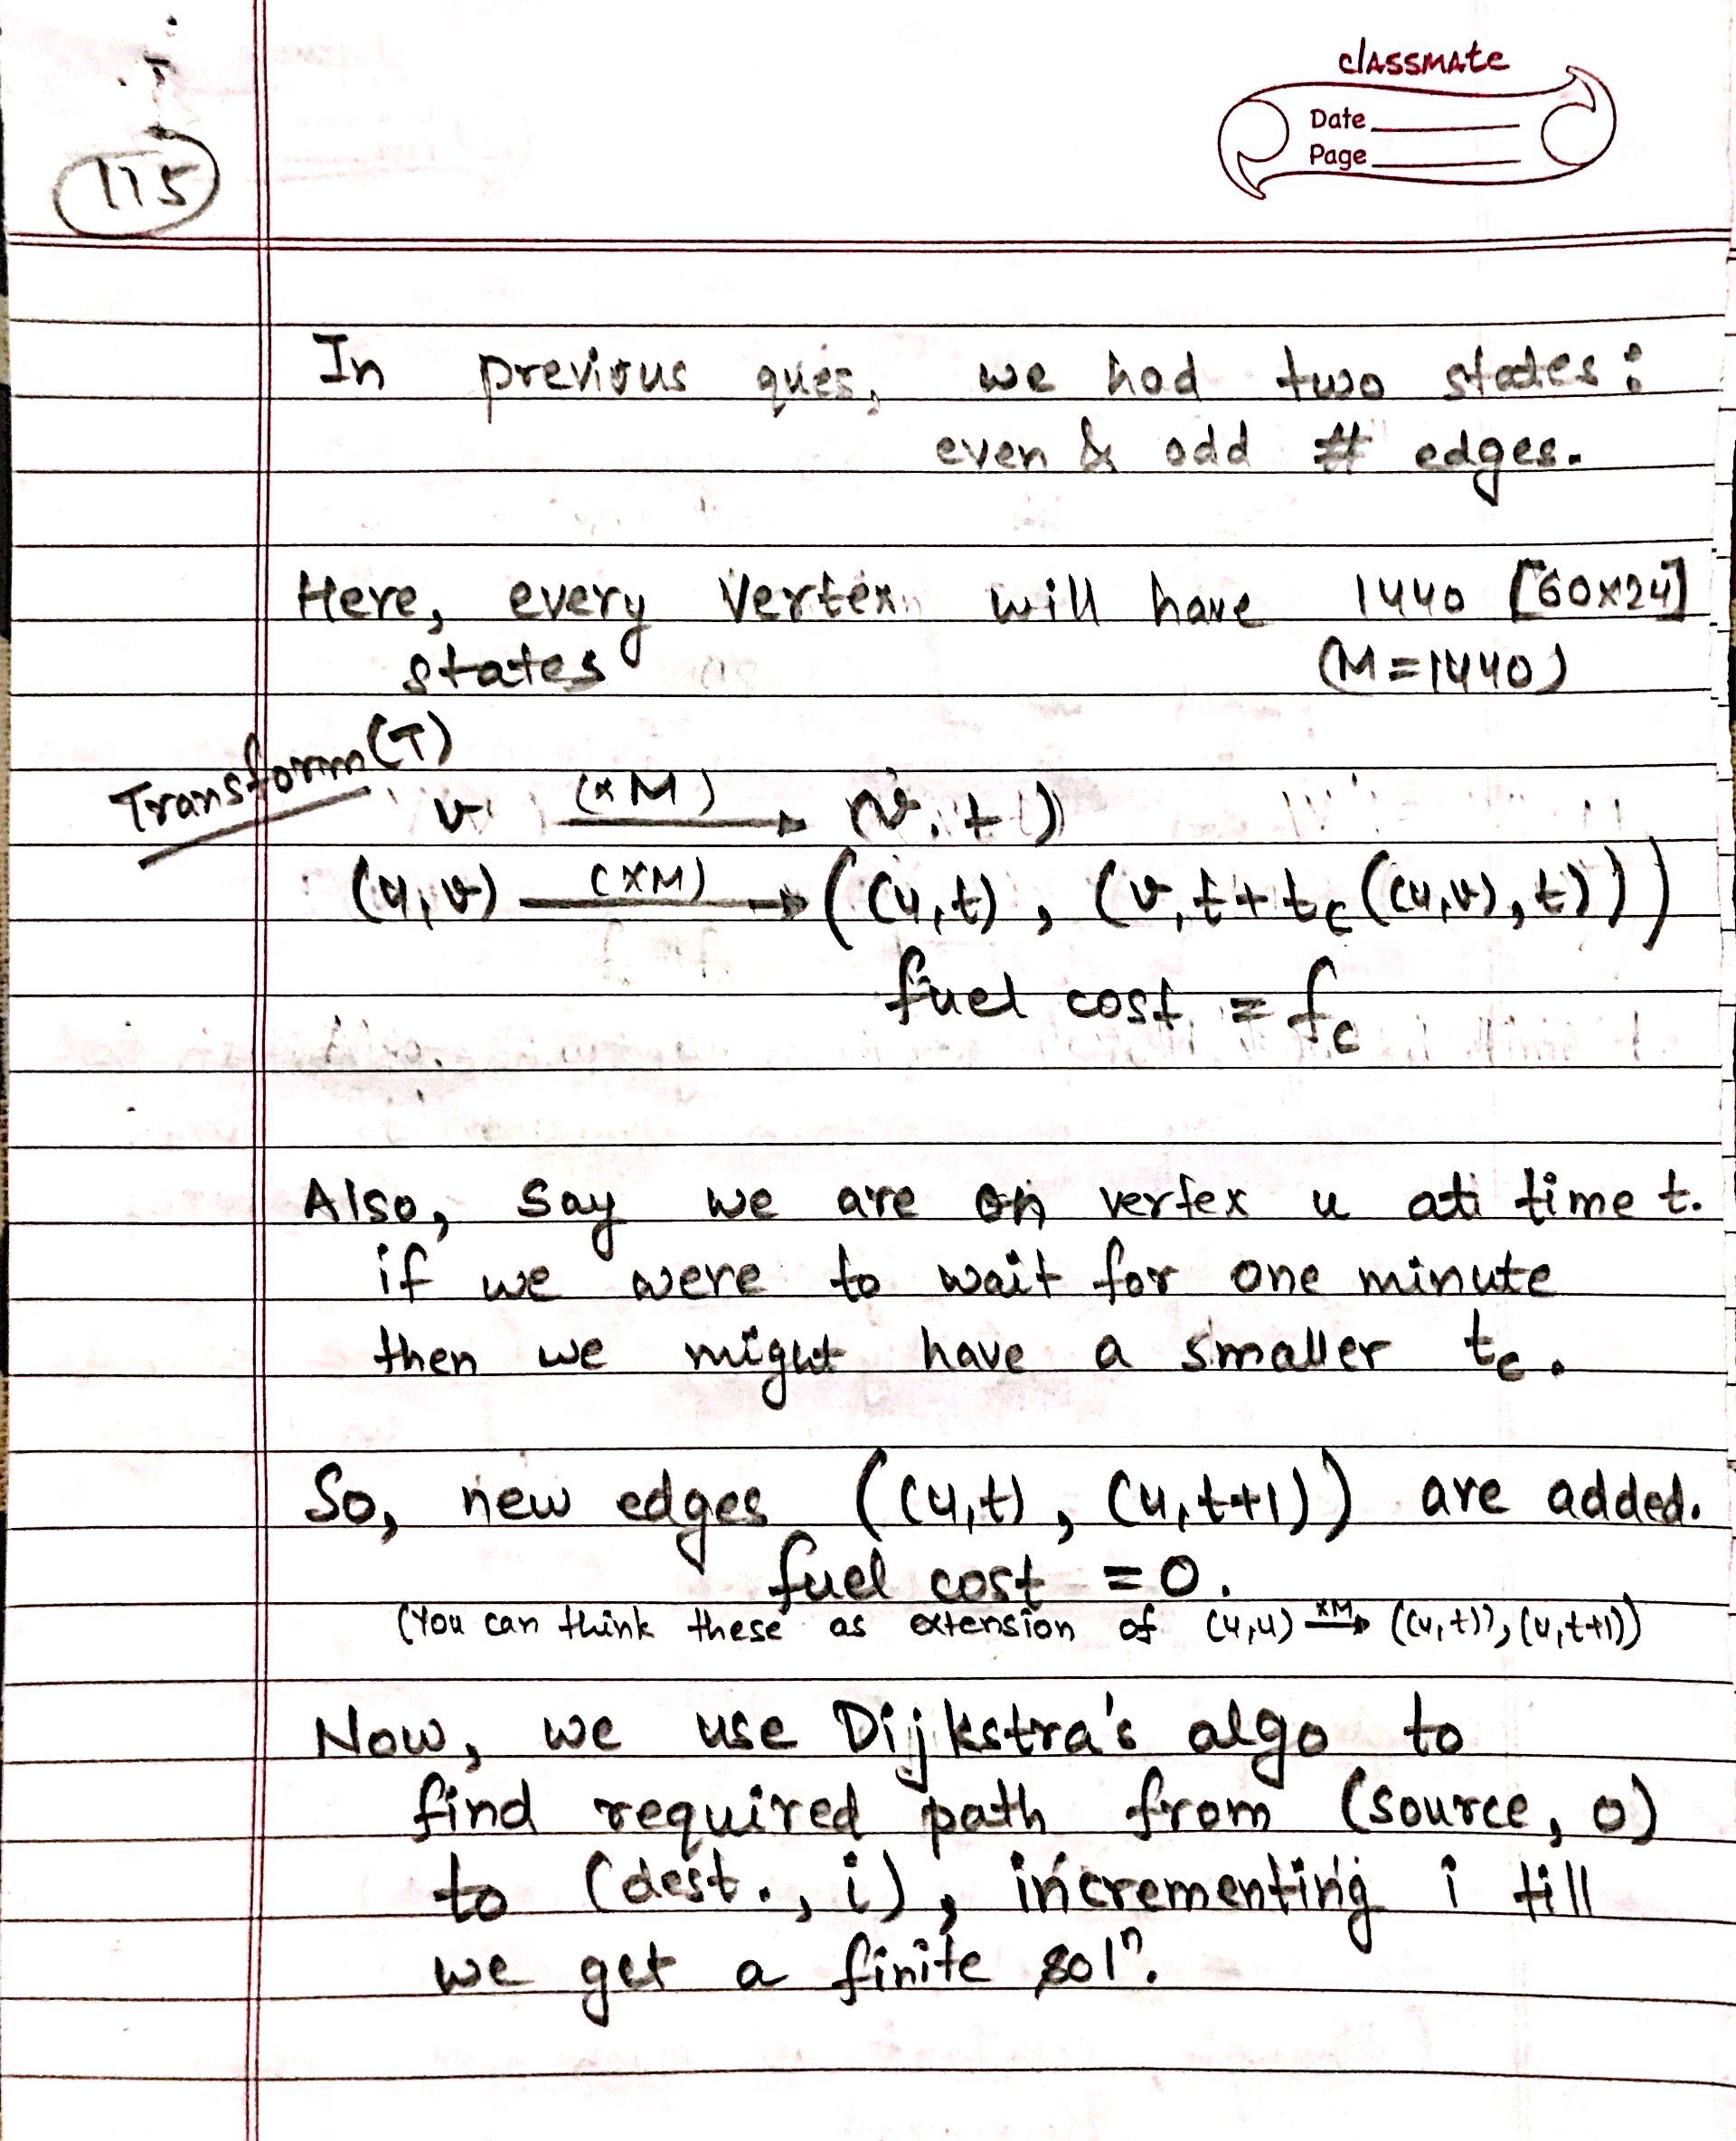 classmate
Date
Page
115
In previous ques, we had two states:
even & odd # edges.
Here, every vertex will have 1440 [60×24]
states (M=1440)
Transform(T)
v (×M) → (v, t)
(u,v) (×M) → ((u,t), (v,t+t_c((u,v),t)))
fuel cost = f_c
Also, say we are on vertex u at time t.
if we were to wait for one minute
then we might have a smaller t_c.
So, new edges ((u,t), (u,t+1)) are added.
fuel cost = 0.
(You can think these as extension of (u,u) ×M→ ((u,t)), (u,t+1))
Now, we use Dijkstra's algo to
find required path from (source, 0)
to (dest., i), incrementing i till
we get a finite solⁿ.